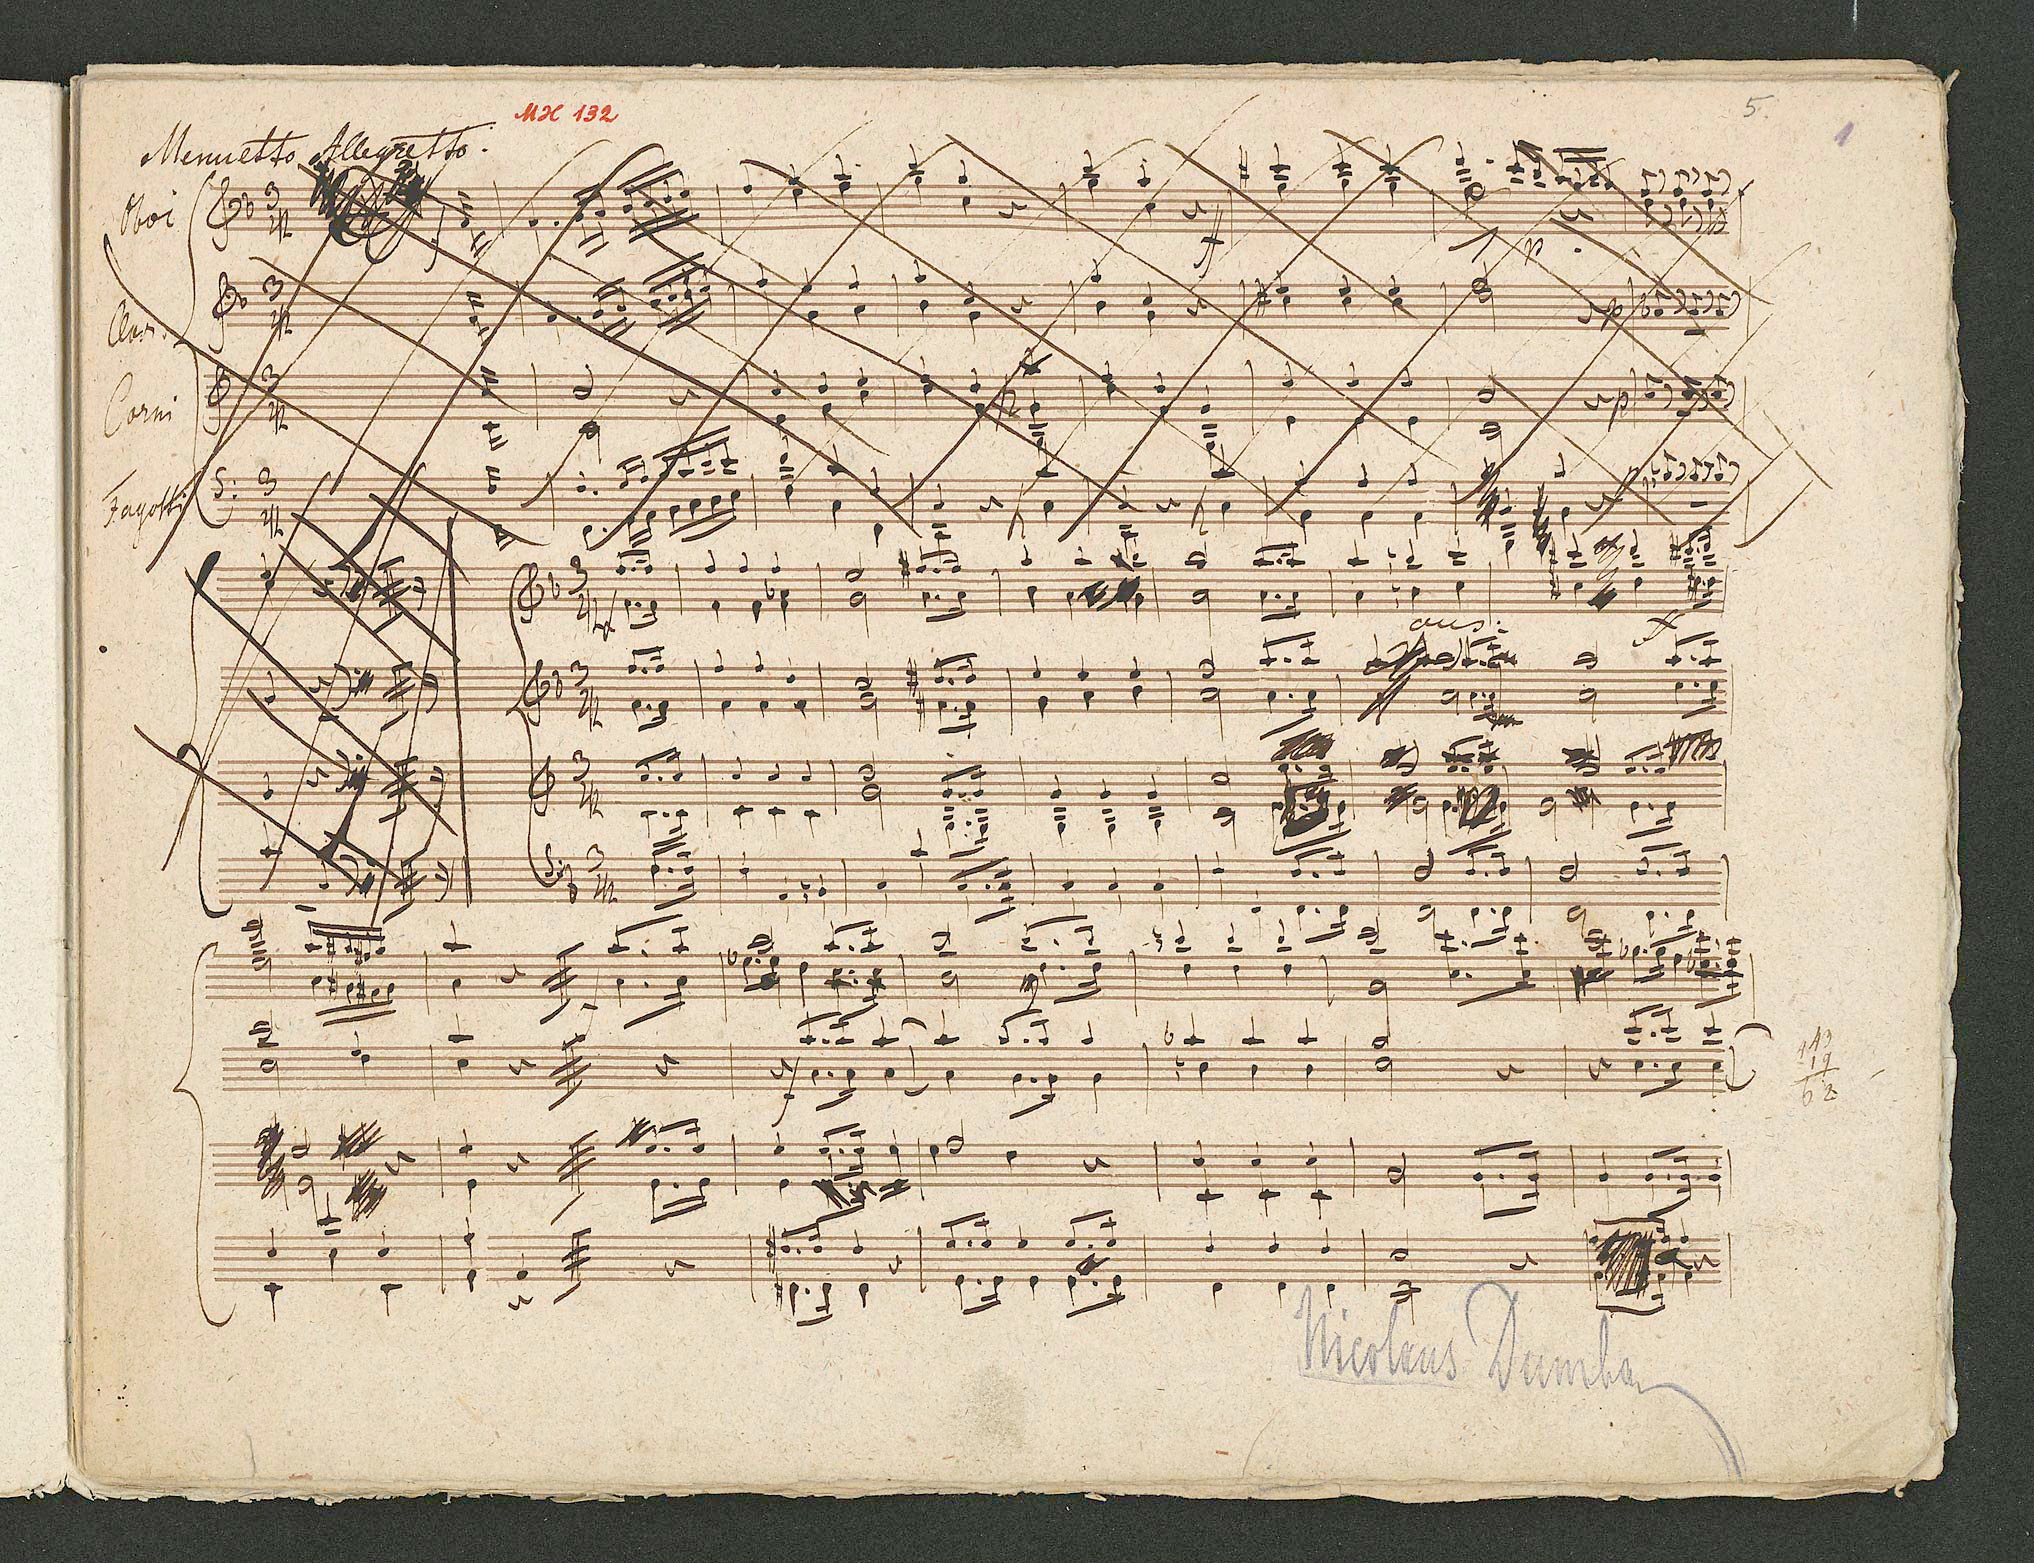 MH 132
5.
1
Menuetto Allegretto.
Oboi
Clar.
Corni
Fagotti
ff
p.
p
p
p
aus:
f
113
19
62
Nicolaus Dumba